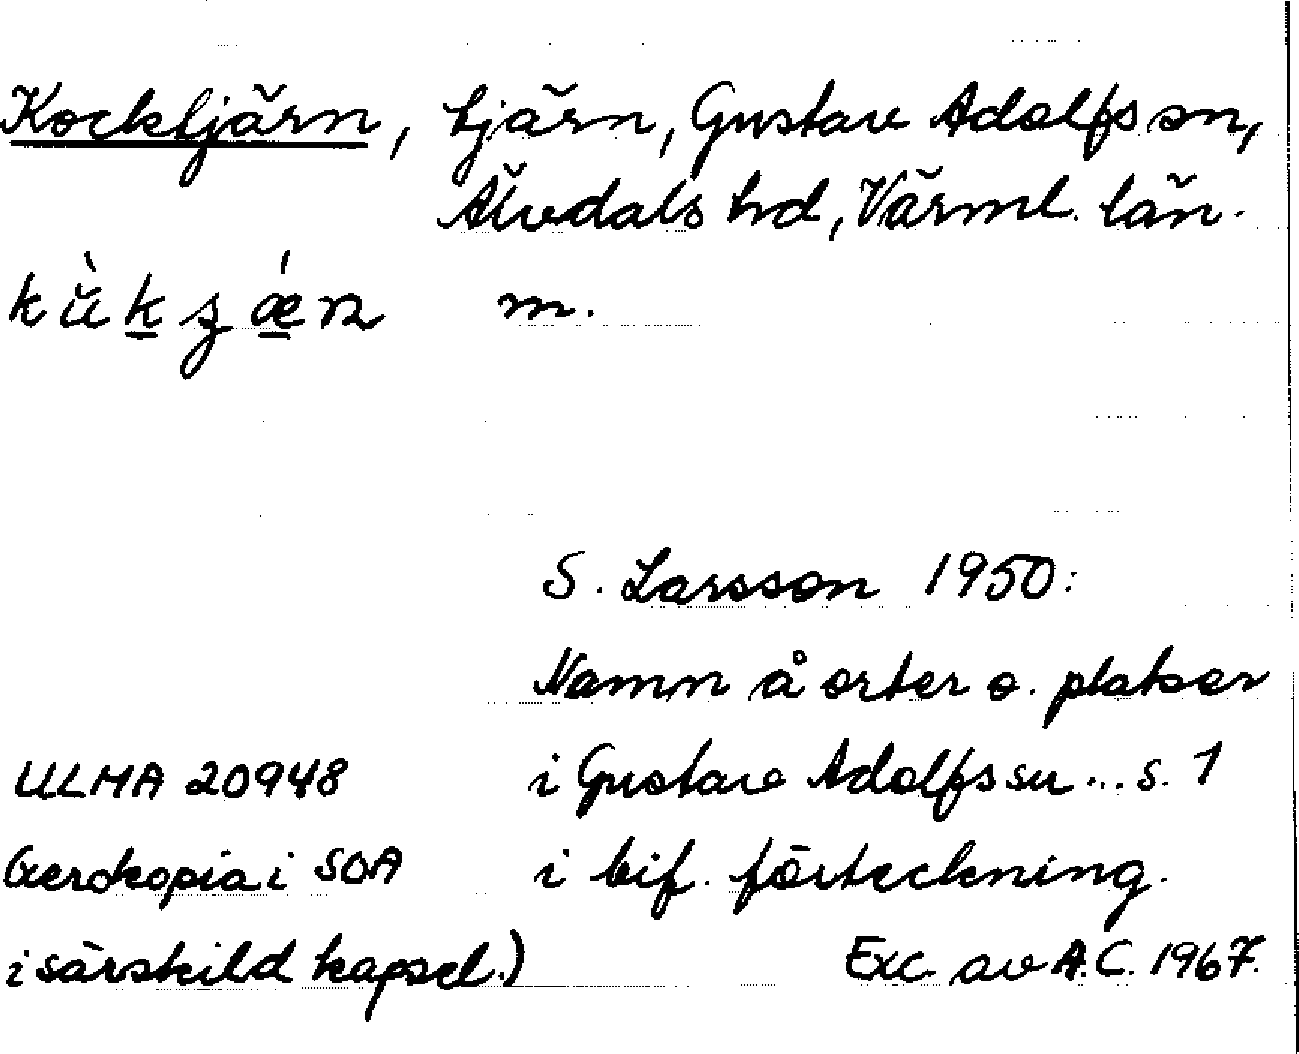 Kocktjärn, tjärn, Gustav Adolfs sn,
Älvdals hd, Värml. län.
m.
S. Larsson 1950:
Namn å orter o. platser
i Gustav Adolfs sn... s. 1
i bif. förteckning.
ULMA 20948
(Xerokopia i SOA
i särskild kapsel.)
Exc. av A.C. 1967.